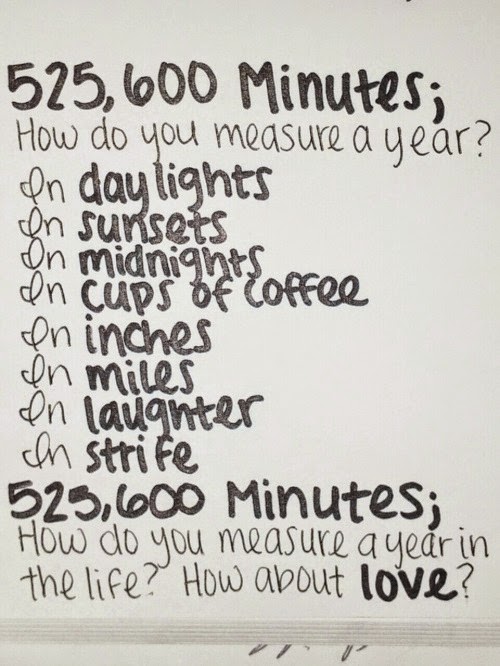 525,600 Minutes;
How do you measure a year?
In daylights
In sunsets
In midnights
In cups of coffee
In inches
In miles
In laughter
In strife
525,600 Minutes;
How do you measure a year in
the life? How about love?